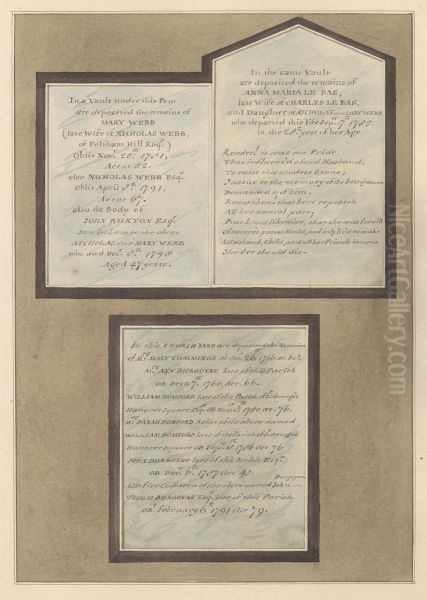 In a Vault under this Pew
are deposited the remains of
MARY WEBB
(late Wife of NICHOLAS WEBB,
of Feltham Hill Esqr.)
Obiit Novr. 25th 1781,
Aetat 52.
also NICHOLAS WEBB Esqr.
obiit April 9th 1791,
Aetat 67.
also the Body of
JOHN BURTON Esqr.
Son in Law to the above
NICHOLAS and MARY WEBB
who died Decr. 1798
Aged 47 years.
In the same Vault
are deposited the remains of
ANNA MARIA LE BAS,
late Wife of CHARLES LE BAS,
and Daughter of NICHOLAS and MARY WEBB
who departed this life Sepr. 7th
in the year of her Age.
Reader, it was not Pride
That influenc'd a fond Husband,
To raise this modest Stone;
Justice to the memory of the being
Demanded it of him.
Know then, that here reposeth
All her mortal part;
But know likewise, that she was
Of Nature's and only liv'd to make
A Husband, Child, and all her Friends lament
She e'er should die.
In this CHURCH YARD are deposited the Remains
of Mrs. MARY CUMMINGS ob Octr. 26th 1766 aet. 62.
Mrs. ANN BURGOYNE late of this Parish
OB Decr. 7th 1766 Aet. 66.
WILLIAM BOMFORD late of the Parish of St. George's
Hanover Square Esqr. OB Novr. 1780 aet. 76.
Mrs. SARAH BOMFORD Relict of the above named
WILLIAM BOMFORD late of the Parish of St. George's
Hanover Square OB Sepr. 1786 Aet 76
JOHN BURGOYNE late of this Parish Esqr.
OB Decr. 6th 1787 Aet 45.
Burgoyne
Also five Children of the above named John
THOMAS BURGOYNE Esqr. late of this Parish
OBt. February 6th 1791 Aet 79.